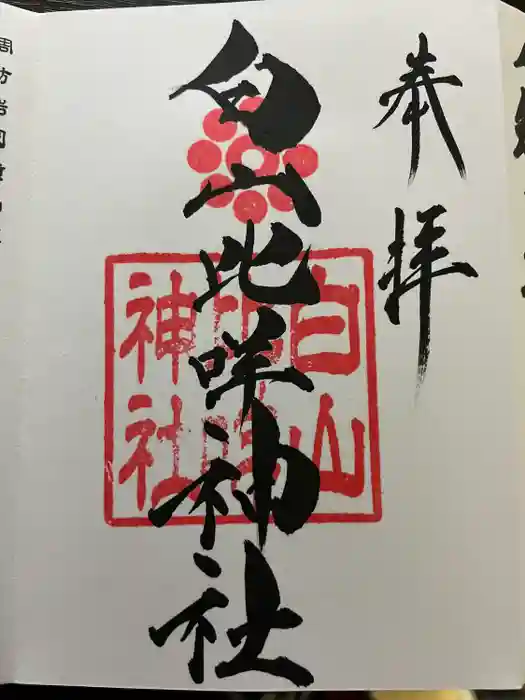 奉拝
白山比咩神社
白山
比咩
神社
周防岩国